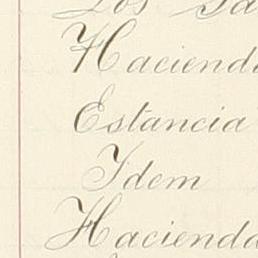 Los
Hacienda
Estancia
Idem
Hacienda